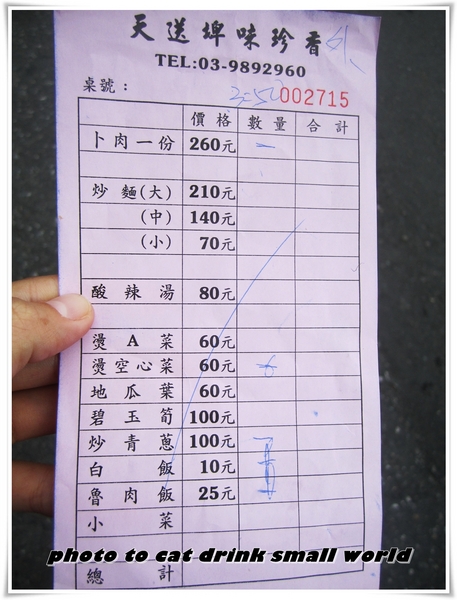 天送埤味珍香 外
TEL:03-9892960
桌號：
002715
價格 數量 合計
卜肉一份 260元 一
炒麵(大) 210元
(中) 140元
(小) 70元
酸辣湯 80元
燙A菜 60元
燙空心菜 60元
地瓜葉 60元
碧玉筍 100元
炒青蔥 100元
白飯 10元
魯肉飯 25元
小菜
總計
photo to eat drink small world